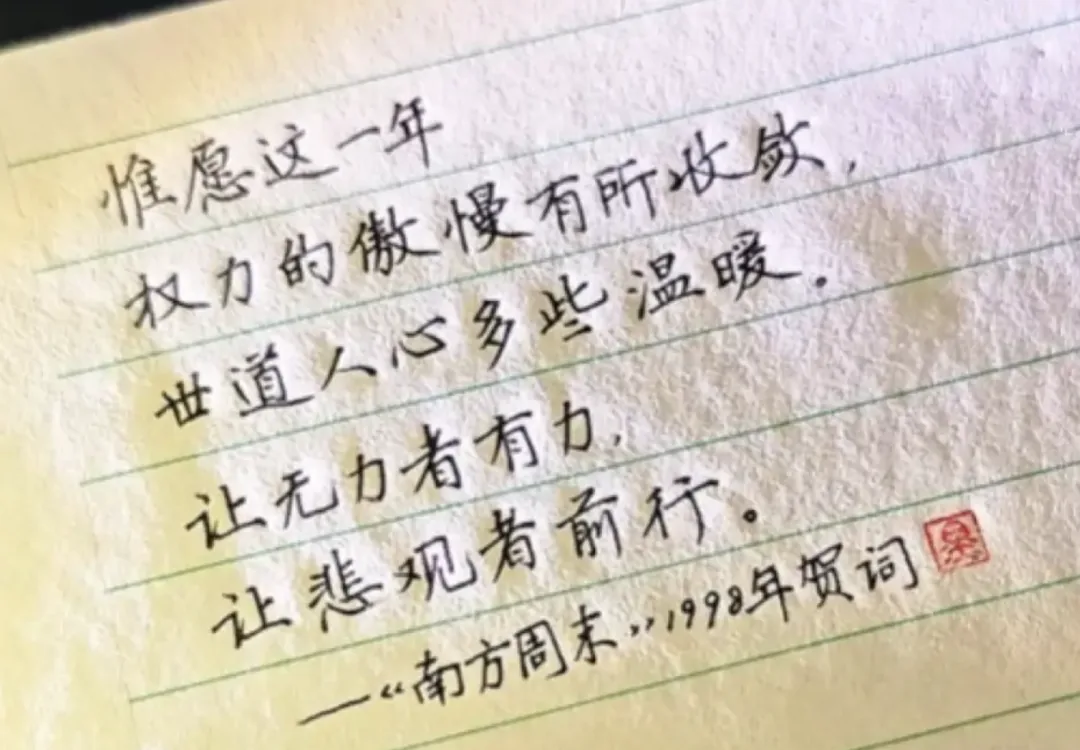 惟愿这一年
权力的傲慢有所收敛，
世道人心多些温暖。
让无力者有力，
让悲观者前行。
—“南方周末”1998年贺词